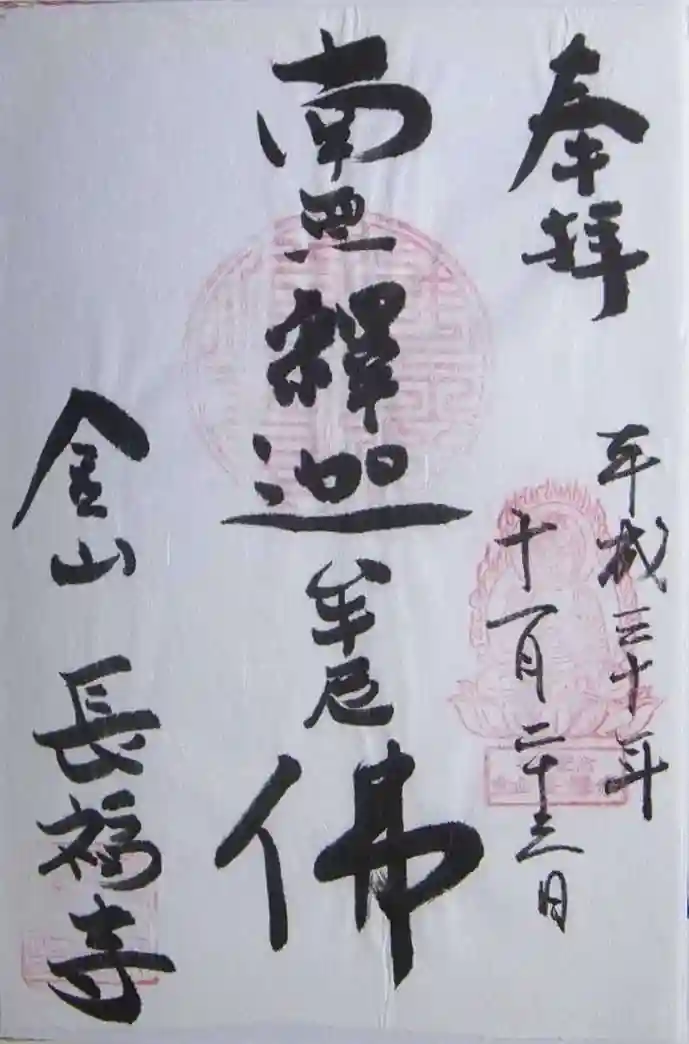 奉拝
平成三十年
十一月二十三日
南無釋迦牟尼佛
金山 長福寺